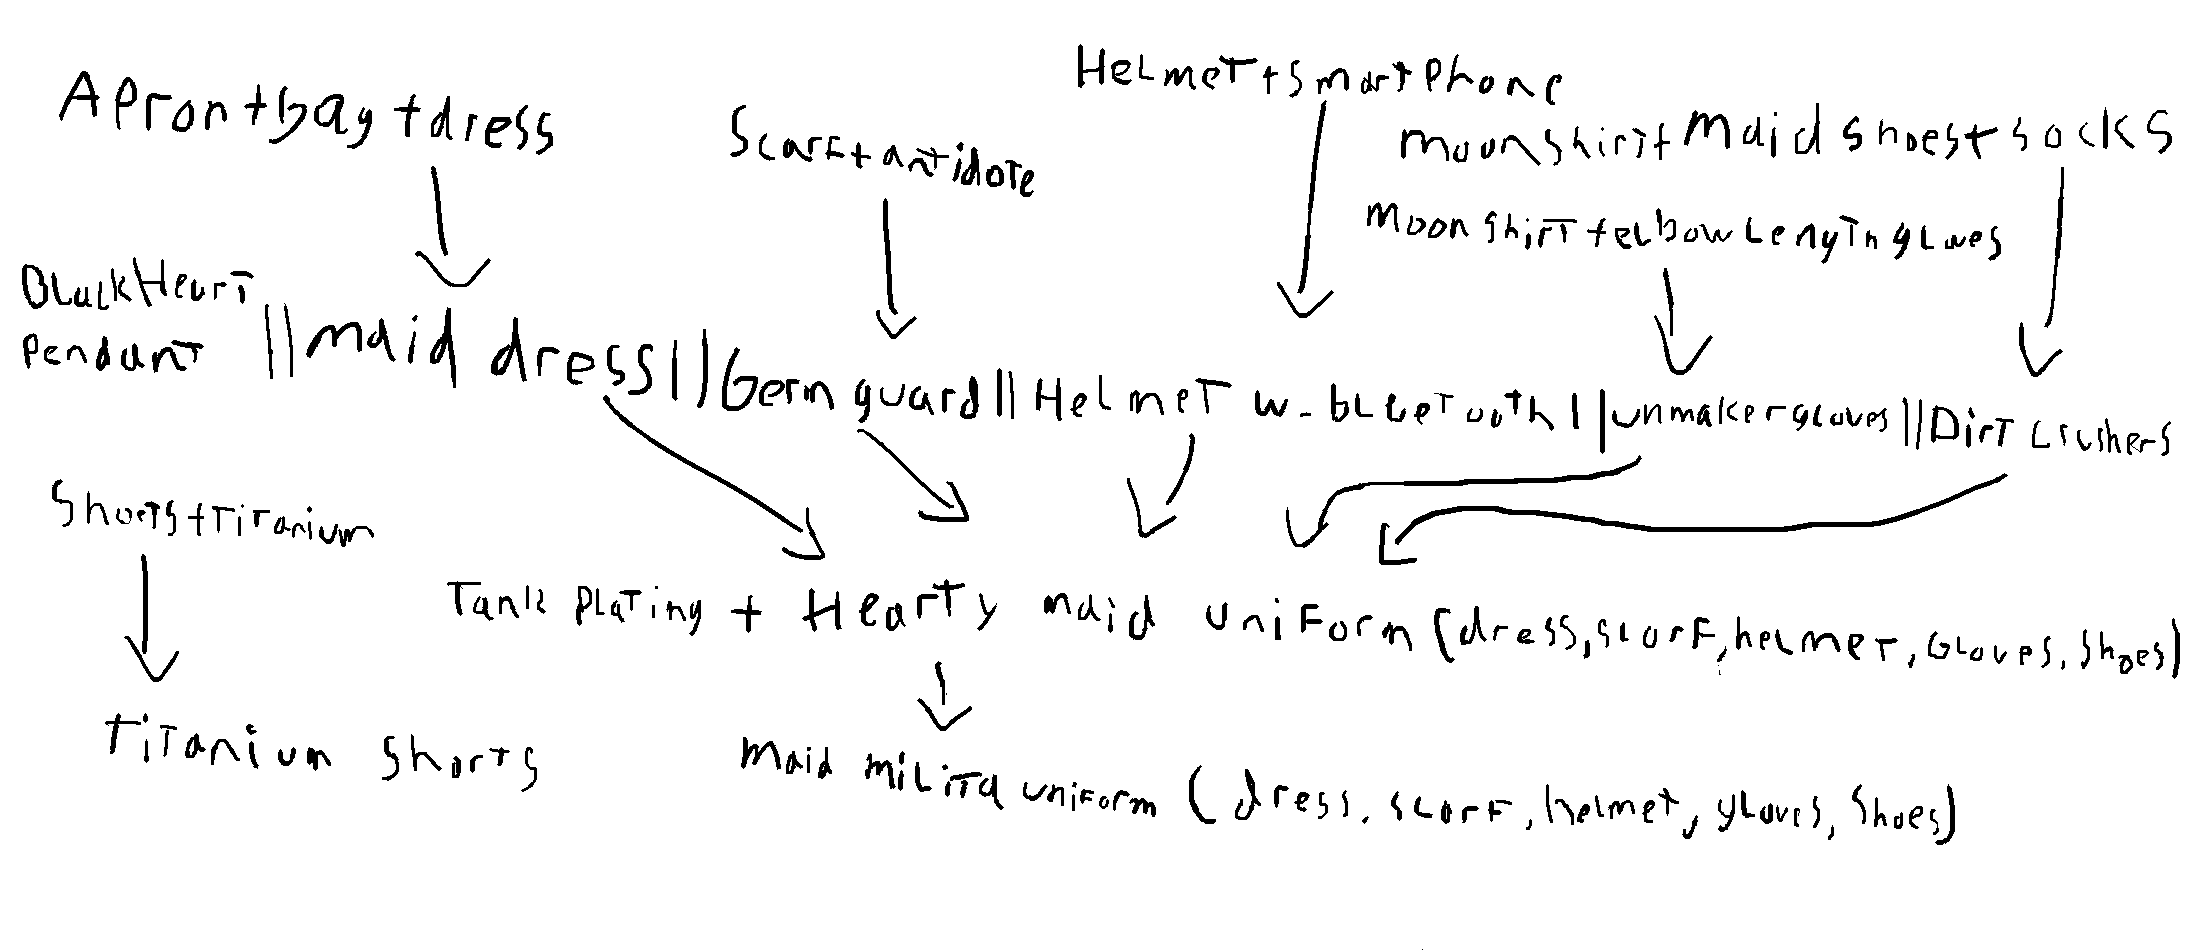 Helmet+smartphone
Apron+bag+dress
Scarf+antidote
moonshirt+maid shoes+socks
moonshirt+elbow length gloves
Black Heart
Pendant
||maid dress||Germ guard||Helmet w-bluetooth||unmaker gloves||Dirt crushers
Shorts+Titanium
Tank plating + Hearty maid uniform (dress, scarf, helmet, Gloves, shoes)
Titanium shorts
maid milita uniform (dress, scarf, helmet, gloves, shoes)